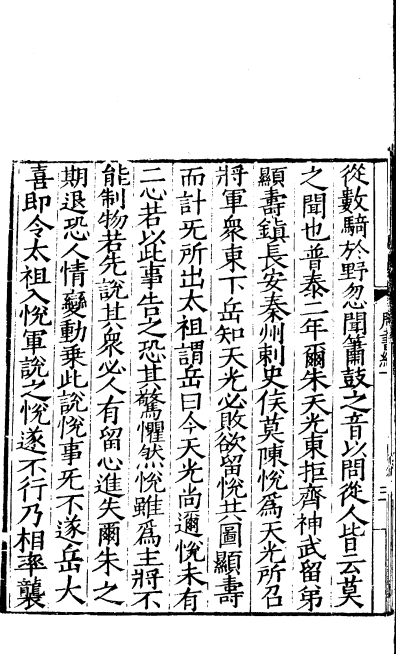 從數騎於野忽聞簫鼓之音以問從人皆云莫
之聞也普泰二年爾朱天光東拒齊神武留弟
顯壽鎮長安秦州刺史侯莫陳悅爲天光所召
將軍衆東下岳知天光必敗欲留悅共圖顯壽
而計无所出太祖謂岳曰今天光尚邇悅未有
二心若以此事告之恐其驚懼然悅雖爲主將不
能制物若先說其衆必人有留心進失爾朱之
期退恐人情變動乗此說悅事无不遂岳大
喜即令太祖入悅軍說之悅遂不行乃相率襲